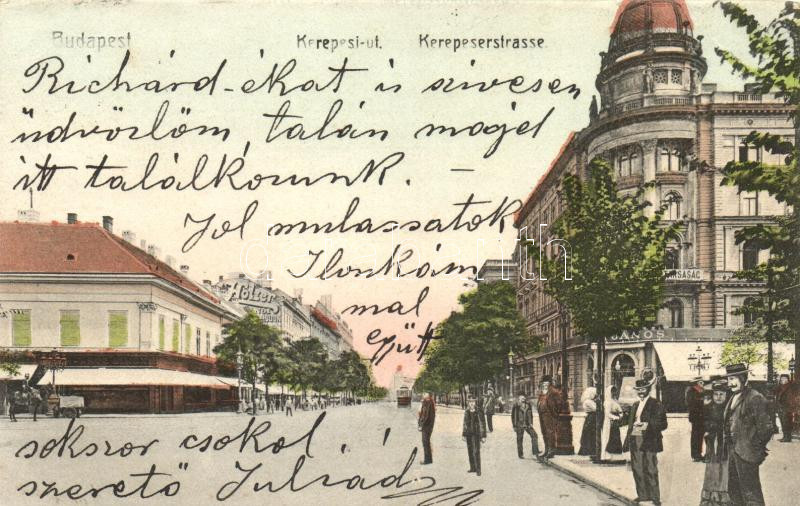 Budapest Kerepesi-ut. Kerepeserstrasse.
Richárd-ékat is szivesen
üdvözlöm, talán majd
itt találkozunk. —
Jol mulassatok
Ilonkám
mal
együtt
Holzer
TÁRSASÁG
sokszor csokol, i
szerető Juliád